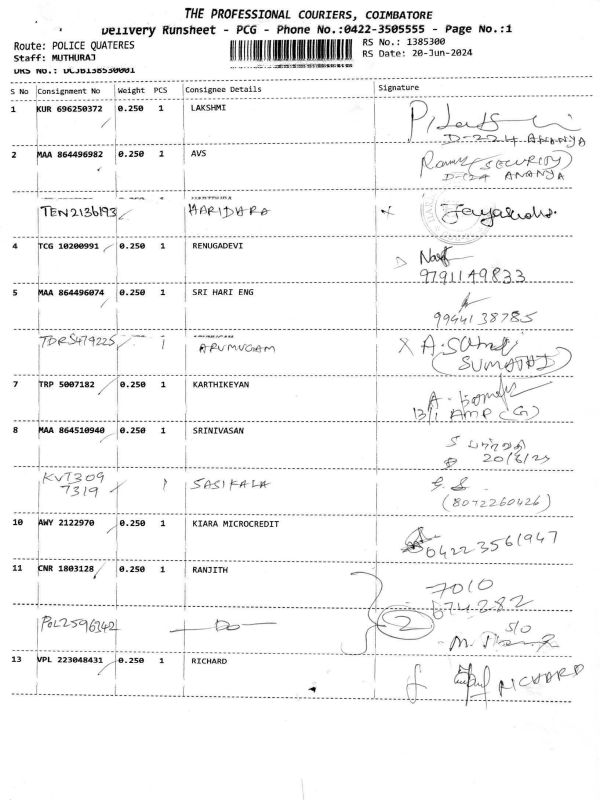 THE PROFESSIONAL COURIERS, COIMBATORE
Delivery Runsheet - PCG - Phone No.:0422-3505555 - Page No.:1
Route: POLICE QUATERES
RS No.: 1385300
Staff: MUTHURAJ
RS Date: 20-Jun-2024
DRS No.: DCJB138530001
S No Consignment No Weight PCS Consignee Details Signature
1 KUR 696250372 0.250 1 LAKSHMI
D-224 ANANYA
2 MAA 864496982 0.250 1 AVS
(SECURITY)
D-124 ANANYA
TEN2136193 HARIDHARA
4 TCG 10200991 0.250 1 RENUGADEVI
9791149833
5 MAA 864496074 0.250 1 SRI HARI ENG
9944138785
TDR5479225 1 ARUMUGAM
(SUMATHI)
7 TRP 5007182 0.250 1 KARTHIKEYAN
13/1 AMP (G)
8 MAA 864510940 0.250 1 SRINIVASAN
20/6/24
KVT309
7319 1 SASIKALA
(8072260426)
10 AWY 2122970 0.250 1 KIARA MICROCREDIT
04223561947
11 CNR 1803128 0.250 1 RANJITH
7010
674282
POL2596342 Do 2
S/O
13 VPL 223048431 0.250 1 RICHARD
RICHARD